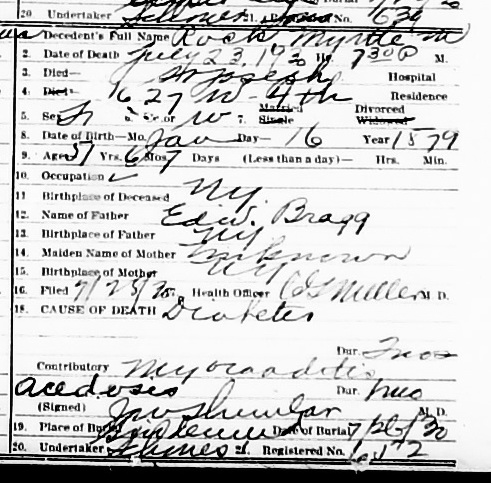 20. Undertaker 21. Registered No. 1639
Decedent's Full Name Rock Myrtle M
2. Date of Death July 23, 1930 Hr. 7 30 P M.
3. Died— St Joseph Hospital
4. Died— 1627 W-4th Residence
5. Sex F 6. Color W 7. Married Single Divorced Widowed
8. Date of Birth—Mo. Jan Day— 16 Year 1879
9. Age 51 Yrs. 6 Mos. 7 Days (Less than a day)— Hrs. Min.
10. Occupation ✓
11 Birthplace of Deceased Ny.
12. Name of Father Edw. Bragg
13. Birthplace of Father Ny
14. Maiden Name of Mother Unknown
15. Birthplace of Mother Ny
16. Filed 7/25/30 Health Officer Miller M D.
18. CAUSE OF DEATH Diabetes
Dur.
Contributory Myocarditis
Acedosis Dur.
(Signed) M. D.
19. Place of Burial Date of Burial 7 30
20. Undertaker 21. Registered No.